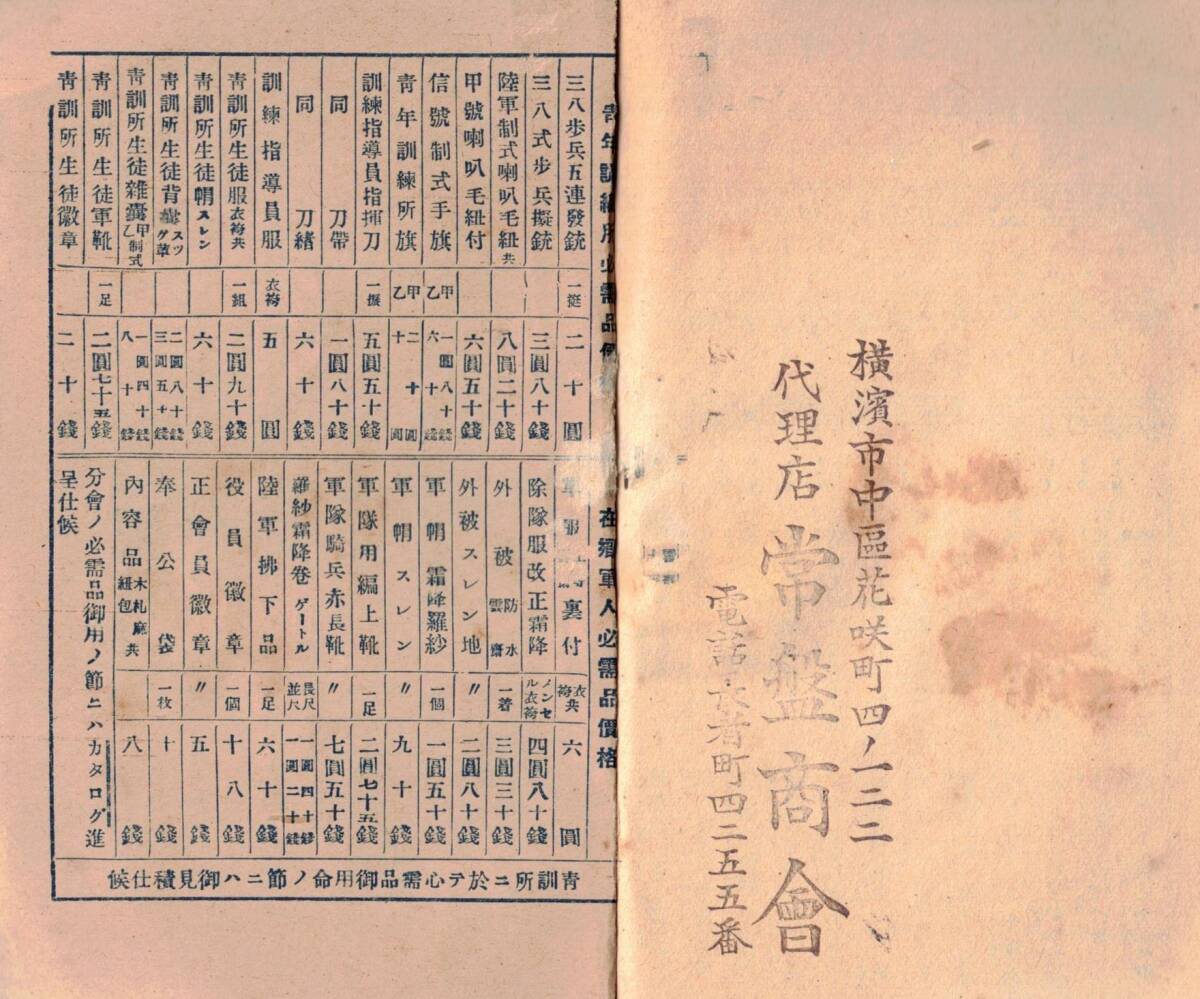 横濱市中區花咲町四ノ一二二
代理店 常盤商會
電話長者町四二五五番
青年訓練所必需品價
三八歩兵五連發銃 一挺 二十圓
三八式歩兵擬銃 三圓八十錢
陸軍制式喇叭毛紐共 八圓二十錢
甲號喇叭毛紐付 六圓五十錢
信號制式手旗 甲乙 一圓八十錢 六十錢
青年訓練所旗 甲乙 二十圓 十圓
訓練指導員指揮刀 一振 五圓五十錢
同 刀帶 一圓八十錢
同 刀緒 六十錢
訓練指導員服 衣袴 五圓
青訓所生徒服衣袴共 一組 二圓九十錢
青訓所生徒帽スレン 六十錢
青訓所生徒背嚢スック革 二圓八十錢 三圓五十錢
青訓所生徒雜嚢甲乙制式 一圓四十錢 八十錢
青訓所生徒軍靴 一足 二圓七十五錢
青訓所生徒徽章 二十錢
在郷軍人必需品價格
軍服 裏付 衣袴共 六圓
除隊服改正霜降 ノンセル衣袴 四圓八十錢
外被 防水雲齋 一着 三圓三十錢
外被スレン地 〃 二圓八十錢
軍帽霜降羅紗 一個 一圓五十錢
軍帽スレン 〃 九十錢
軍隊用編上靴 一足 二圓七十五錢
軍隊騎兵赤長靴 〃 七圓五十錢
羅紗霜降卷ゲートル 長尺並尺 一圓四十錢 一圓二十錢
陸軍拂下品 一足 六十錢
役員徽章 一個 十八錢
正會員徽章 〃 五錢
奉公袋 一枚 十錢
內容品木札麻紐包共 八錢
分會ノ必需品御用ノ節ニハカタログ進
呈仕候
青訓所ニ於テ心需品御用命ノ節ニハ御見積仕候